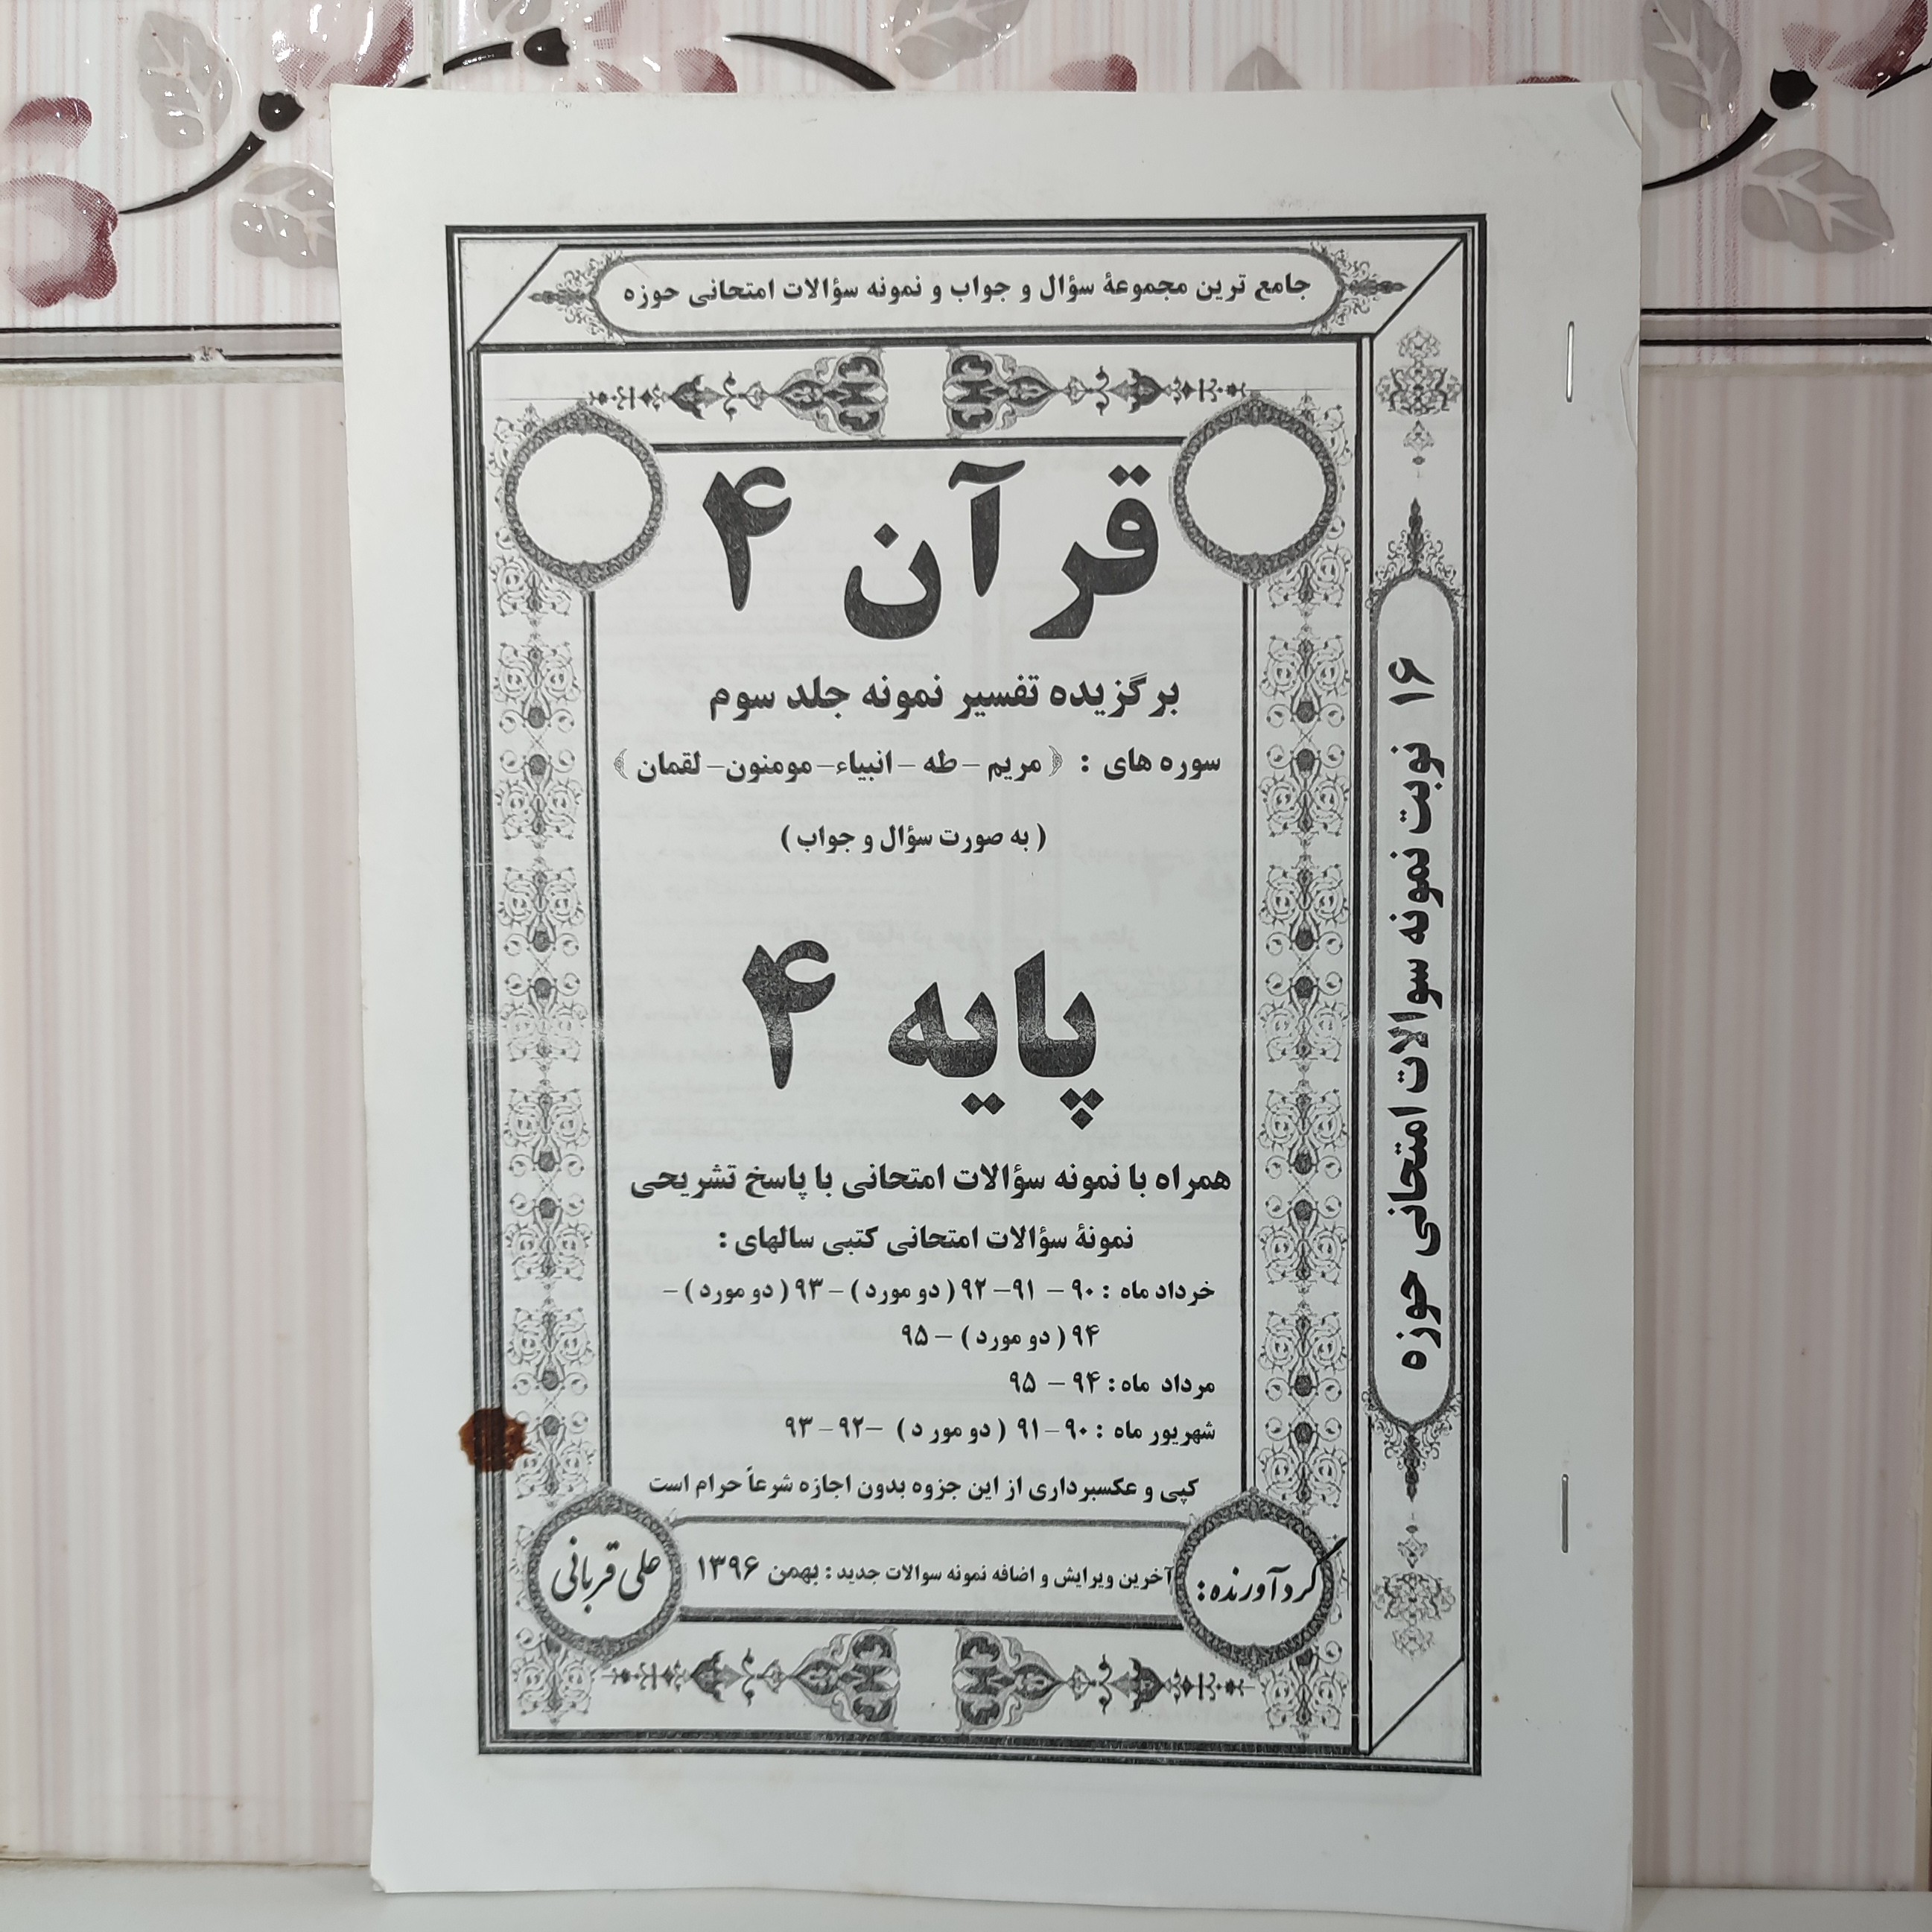 جامع ترین مجموعۀ سؤال و جواب و نمونه سؤالات امتحانی حوزه
۱۶ نوبت نمونه سوالات امتحانی حوزه
قرآن ۴
برگزیده تفسیر نمونه جلد سوم
سوره های : ﴿ مریم – طه – انبیاء– مومنون– لقمان ﴾
( به صورت سؤال و جواب )
پایه ۴
همراه با نمونه سؤالات امتحانی با پاسخ تشریحی
نمونۀ سؤالات امتحانی کتبی سالهای :
خرداد ماه : ۹۰ – ۹۱– ۹۲ ( دو مورد ) – ۹۳ ( دو مورد ) –
۹۴ ( دو مورد ) – ۹۵
مرداد ماه : ۹۴ – ۹۵
شهریور ماه : ۹۰ – ۹۱ ( دو مور د ) –۹۲ – ۹۳
کپی و عکسبرداری از این جزوه بدون اجازه شرعاً حرام است
گردآورنده :
آخرین ویرایش و اضافه نمونه سوالات جدید : بهمن ۱۳۹۶
علی قربانی